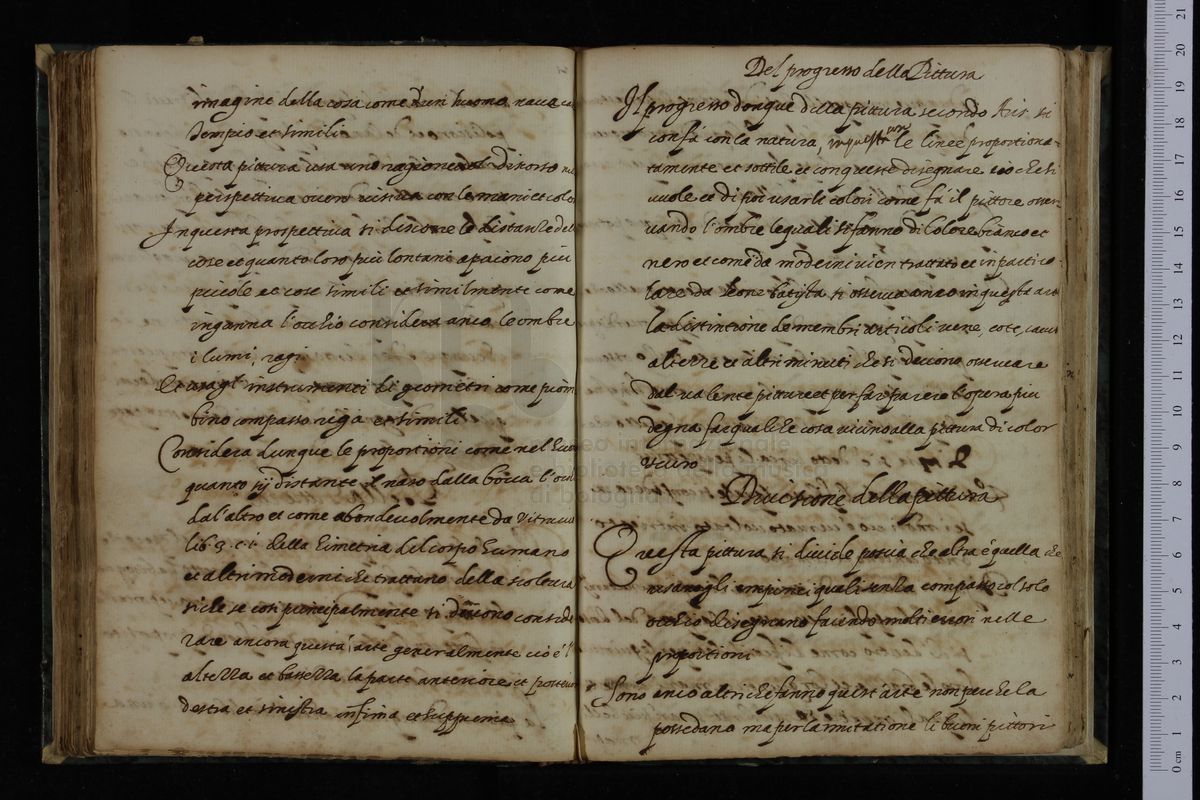 imagine della cosa come d'un huomo nave
Tempio et simili
Questa pittura usa una ragione discorso
perspettiva overo visiva con le mani et colo
In questa prospettiva si discorre le distanze del
cose et quanto loro più lontani apaiono più
piccole et cose simili et similmente come
inganna l'occhio considera anco le ombre
i lumi, ragi
Et usa gl'instrumenti di geometri come piom
bino compasso riga et simili
Considera dunque le proportioni come nel
quanto sij distante il naso dalla bocca l'occ
dal'altro et come abondevolmente da Vitruvio
lib. 3. c. i. della Simetria del corpo humano
et altri moderni che trattano della scoltura
si che se cosi principalmente si devono conside
rare ancora questa arte generalmente ciò è l'
altezza et bassezza la parte anteriore et posterior
destra et sinistra infima et supprema
Del progresso della Pittura
Il progresso donque della pittura secondo Aris. si
confà con la natura, in questa le linee proportiona=
tamente et sottile et con queste disegnare ciò che si
vuole et di poi usarli colori come fà il pittore osser=
vando l'ombre le quali si fanno di colore bianco et
nero et come da moderni vien trattato et in partico=
lare da Leone batista si osserva anco in questa arte
la distintione de membri articoli vene, cote, cavi
altezze et altri minuti che si devono osservare
dal valente pittore et per far parere l'opera più
degna far qualche cosa vicino alla pittura di color
scuro
Divisione della pittura
Questa pittura si divide poscia che altra è quella che
usano gli empirici quali senza compasso col solo
occhio disegnano facendo molti errori nelle
proportioni
Sono anco altri che fanno quest'arte non perche la
possedano ma per la imitatione li buoni pittori
museo internazionale
e biblioteca della musica
di bologna
0 cm 1 2 3 4 5 6 7 8 9 10 11 12 13 14 15 16 17 18 19 20 21